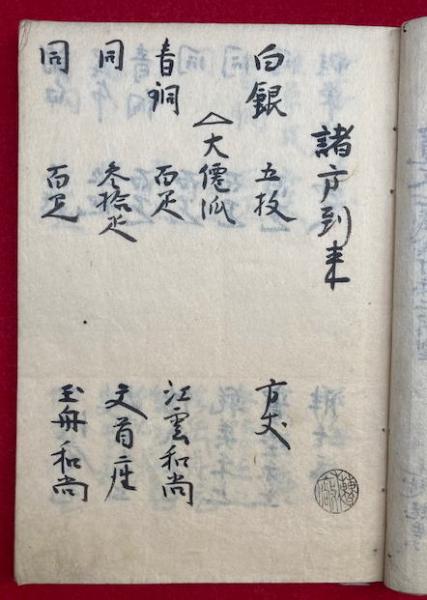 諸方到来
白銀 五枚 方丈
大僊派
青銅 百疋 江雲和尚
同 叄拾疋 文首座
同 百疋 玉舟和尚